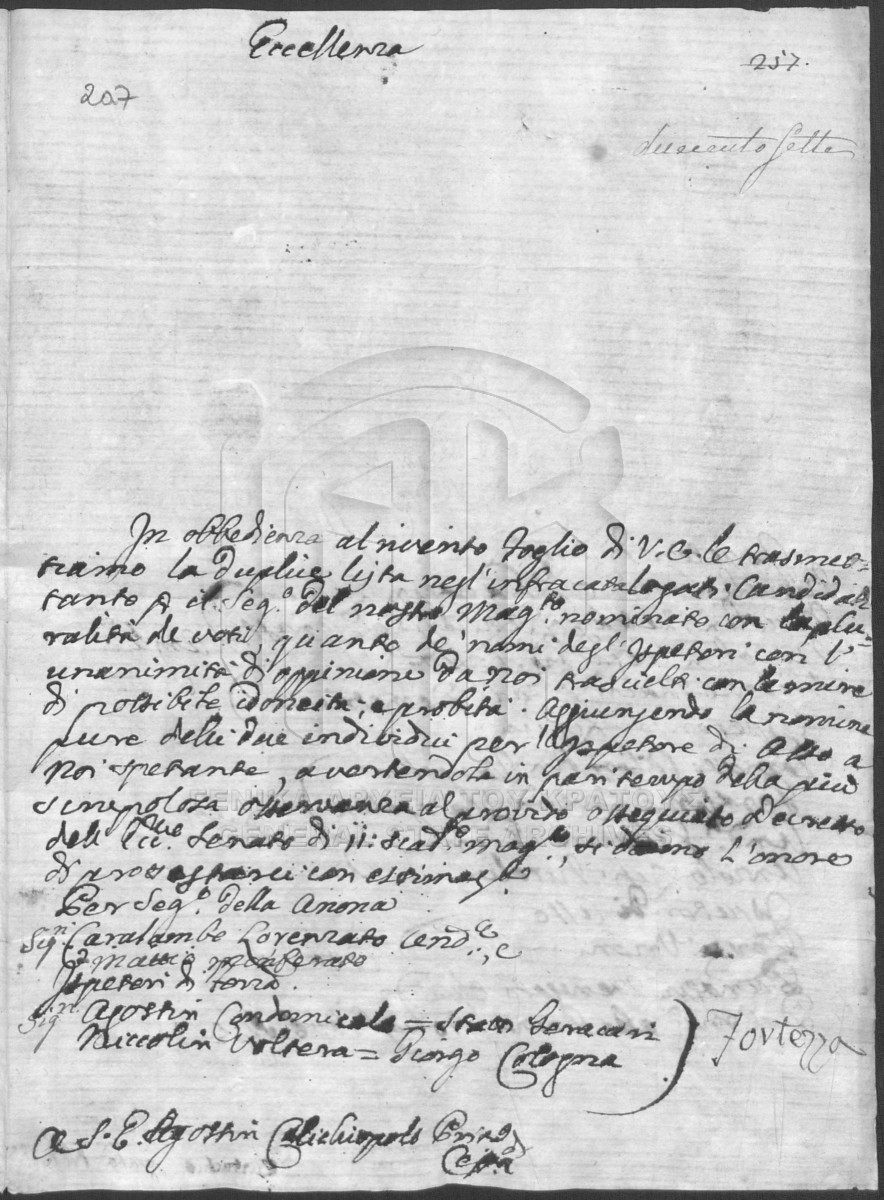 Eccellenza
257.
207
duecento sette
In obbedienza al rivento foglio di V. E. le trasmet=
tiamo la duplice lista negl'infracatalogati Candidati
tanto il Seg.o del nostro Mag.to nominato con la plu=
ralità de voti, quanto de' nomi degl' Ispetori con l'
unanimità di oppinione da noi trascielti con le mire
di possibile idoneità, e probità. Aggiungendo la nomina
pure delli due individui per l'Ispetore di a
Noi spetante, avertendola in pari tempo della più
scrupolosa osservanza al provido ossequiato decretto
dell' Ecc. Senato di 11: scad. mag., si l'onore
di con
Per Seg.o della Anona
Sig.ri Caralambo Lorenzato
Ispetori di terra.
Sig.ri Agostin Condomicolo = Geracari
Niccolin Voltera = Giorgo Cologna
Fortezza
A S. E. Agostin
ΓΕΝΙΚΑ ΑΡΧΕΙΑ ΤΟΥ ΚΡΑΤΟΥΣ
GENERAL STATE ARCHIVES